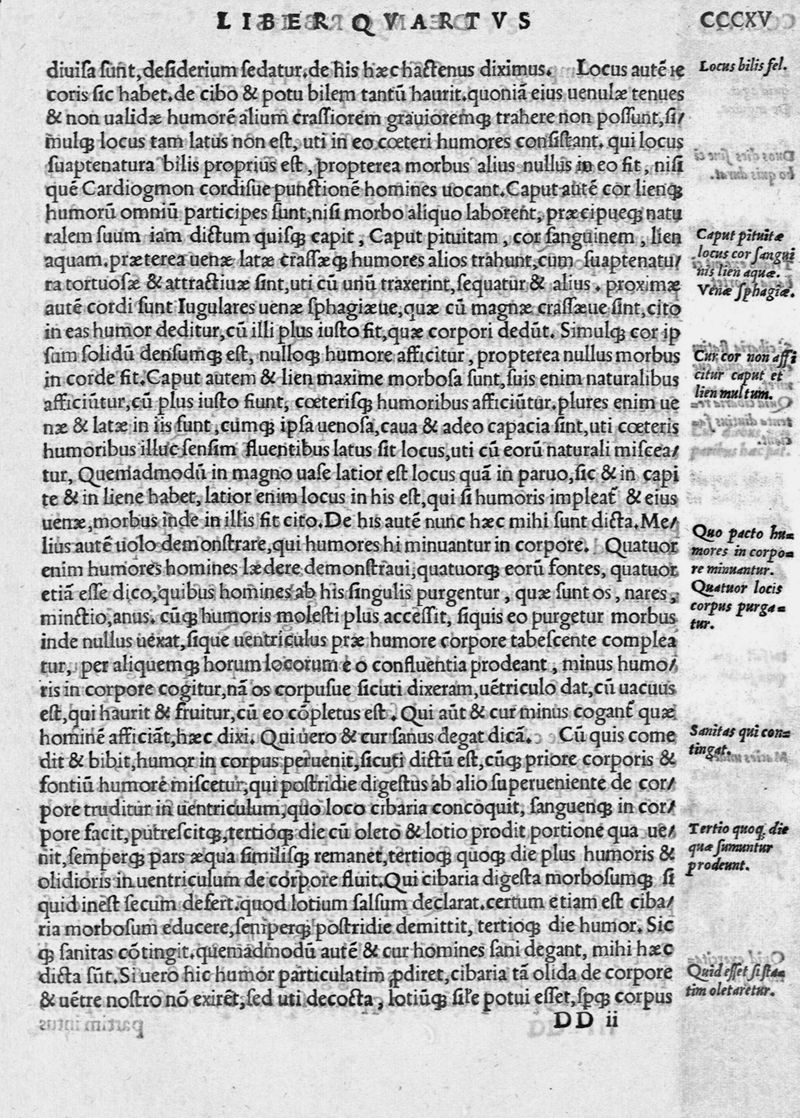 LIBER QVARTVS CCCXV
diuisa sunt,desiderium sedatur.de his hæc hactenus diximus. Locus autẽ ie
coris sic habet.de cibo & potu bilem tantũ haurit.quoniã eius uenulæ tenues
& non ualidæ humorẽ alium crassiorem grauioremqꝫ trahere non possunt,si/
mulqꝫ locus tam latus non est, uti in eo cœteri humores consistant. qui locus
suaptenatura bilis proprius est, propterea morbus alius nullus in eo fit, nisi
quẽ Cardiogmon cordisue punctionẽ homines uocant.Caput autẽ cor lienqꝫ
humorũ omniũ participes sunt,nisi morbo aliquo laborent, præcipueqꝫ natu
ralem suum iam dictum quisqꝫ capit, Caput pituitam, cor sanguinem, lien
aquam.præterea uenæ latæ crassæqꝫ humores alios trahunt,cum suaptenatu/
ra tortuosæ & attractiuæ sint,uti cũ unũ traxerint,sequatur & alius. proximæ
autẽ cordi sunt Iugulares uenæ sphagiæue,quæ cũ magnæ crassæue sint,cito
in eas humor deditur,cũ illi plus iusto fit,quæ corpori dedũt. Simulqꝫ cor ip
sum solidũ densumqꝫ est, nulloqꝫ humore afficitur, propterea nullus morbus
in corde fit.Caput autem & lien maxime morbosa sunt,suis enim naturalibus
afficiũtur,cũ plus iusto fiunt, cœterisqꝫ humoribus afficiũtur.plures enim ue
næ & latæ in iis sunt, cumqꝫ ipsa uenosa,caua & adeo capacia sint,uti cœteris
humoribus illuc sensim fluentibus latus sit locus,uti cũ eorũ naturali miscea/
tur, Quemadmodũ in magno uase latior est locus quã in paruo,sic & in capi
te & in liene habet, latior enim locus in his est,qui si humoris impleat̃ & eius
uenæ,morbus inde in illis fit cito.De his autẽ nunc hæc mihi sunt dicta.Me/
lius autẽ uolo demonstrare,qui humores hi minuantur in corpore. Quatuor
enim humores homines lædere demonstraui,quatuorqꝫ eorũ fontes, quatuor
etiã esse dico,quibus homines ab his singulis purgentur, quæ sunt os, nares,
minctio,anus. cũqꝫ humoris molesti plus accessit, siquis eo purgetur morbus
inde nullus uexat,sique uentriculus præ humore corpore tabescente complea
tur, per aliquemqꝫ horum locorum e o confluentia prodeant, minus humo/
ris in corpore cogitur,nã os corpusue sicuti dixeram,uẽtriculo dat,cũ uacuus
est,qui haurit & fruitur,cũ eo cõpletus est. Qui aũt & cur minus cogant̃ quæ
hominẽ afficiãt,hæc dixi. Qui uero & cur sanus degat dicã. Cũ quis come
dit & bibit,humor in corpus peruenit,sicuti dictũ est,cũqꝫ priore corporis &
fontiũ humore miscetur,qui postridie digestus ab alio superueniente de cor/
pore truditur in uentriculum,quo loco cibaria concoquit, sanguenqꝫ in cor/
pore facit,putrescitqꝫ,tertioqꝫ die cũ oleto & lotio prodit portione qua ue/
nit,semperqꝫ pars æqua similisqꝫ remanet,tertioqꝫ quoqꝫ die plus humoris &
olidioris in uentriculum de corpore fluit.Qui cibaria digesta morbosumqꝫ si
quid inest secum defert.quod lotium salsum declarat.certum etiam est ciba/
ria morbosum educere,semperqꝫ postridie demittit, tertioqꝫ die humor. Sic
qꝫ sanitas cõtingit.quemadmodũ autẽ & cur homines sani degant, mihi hæc
dicta sũt.Si uero hic humor particulatim ꝓdiret,cibaria tã olida de corpore
& uẽtre nostro nõ exirẽt,sed uti decocta, lotiũqꝫ sil̃e potui esset,sꝑqꝫ corpus
DD ii
Locus bilis fel.
Caput pituitæ
locus cor sangui
nis lien aquæ.
Venæ sphagiæ.
Cur cor non affi
citur caput et
lien multum.
Quo pacto hu=
mores in corpo=
re minuantur.
Quatuor locis
corpus purga=
tur.
Sanitas qui con=
tingat.
Tertio quoqꝫ die
quæ sumuntur
prodeunt.
Quid esset si sta=
tim oletaretur.